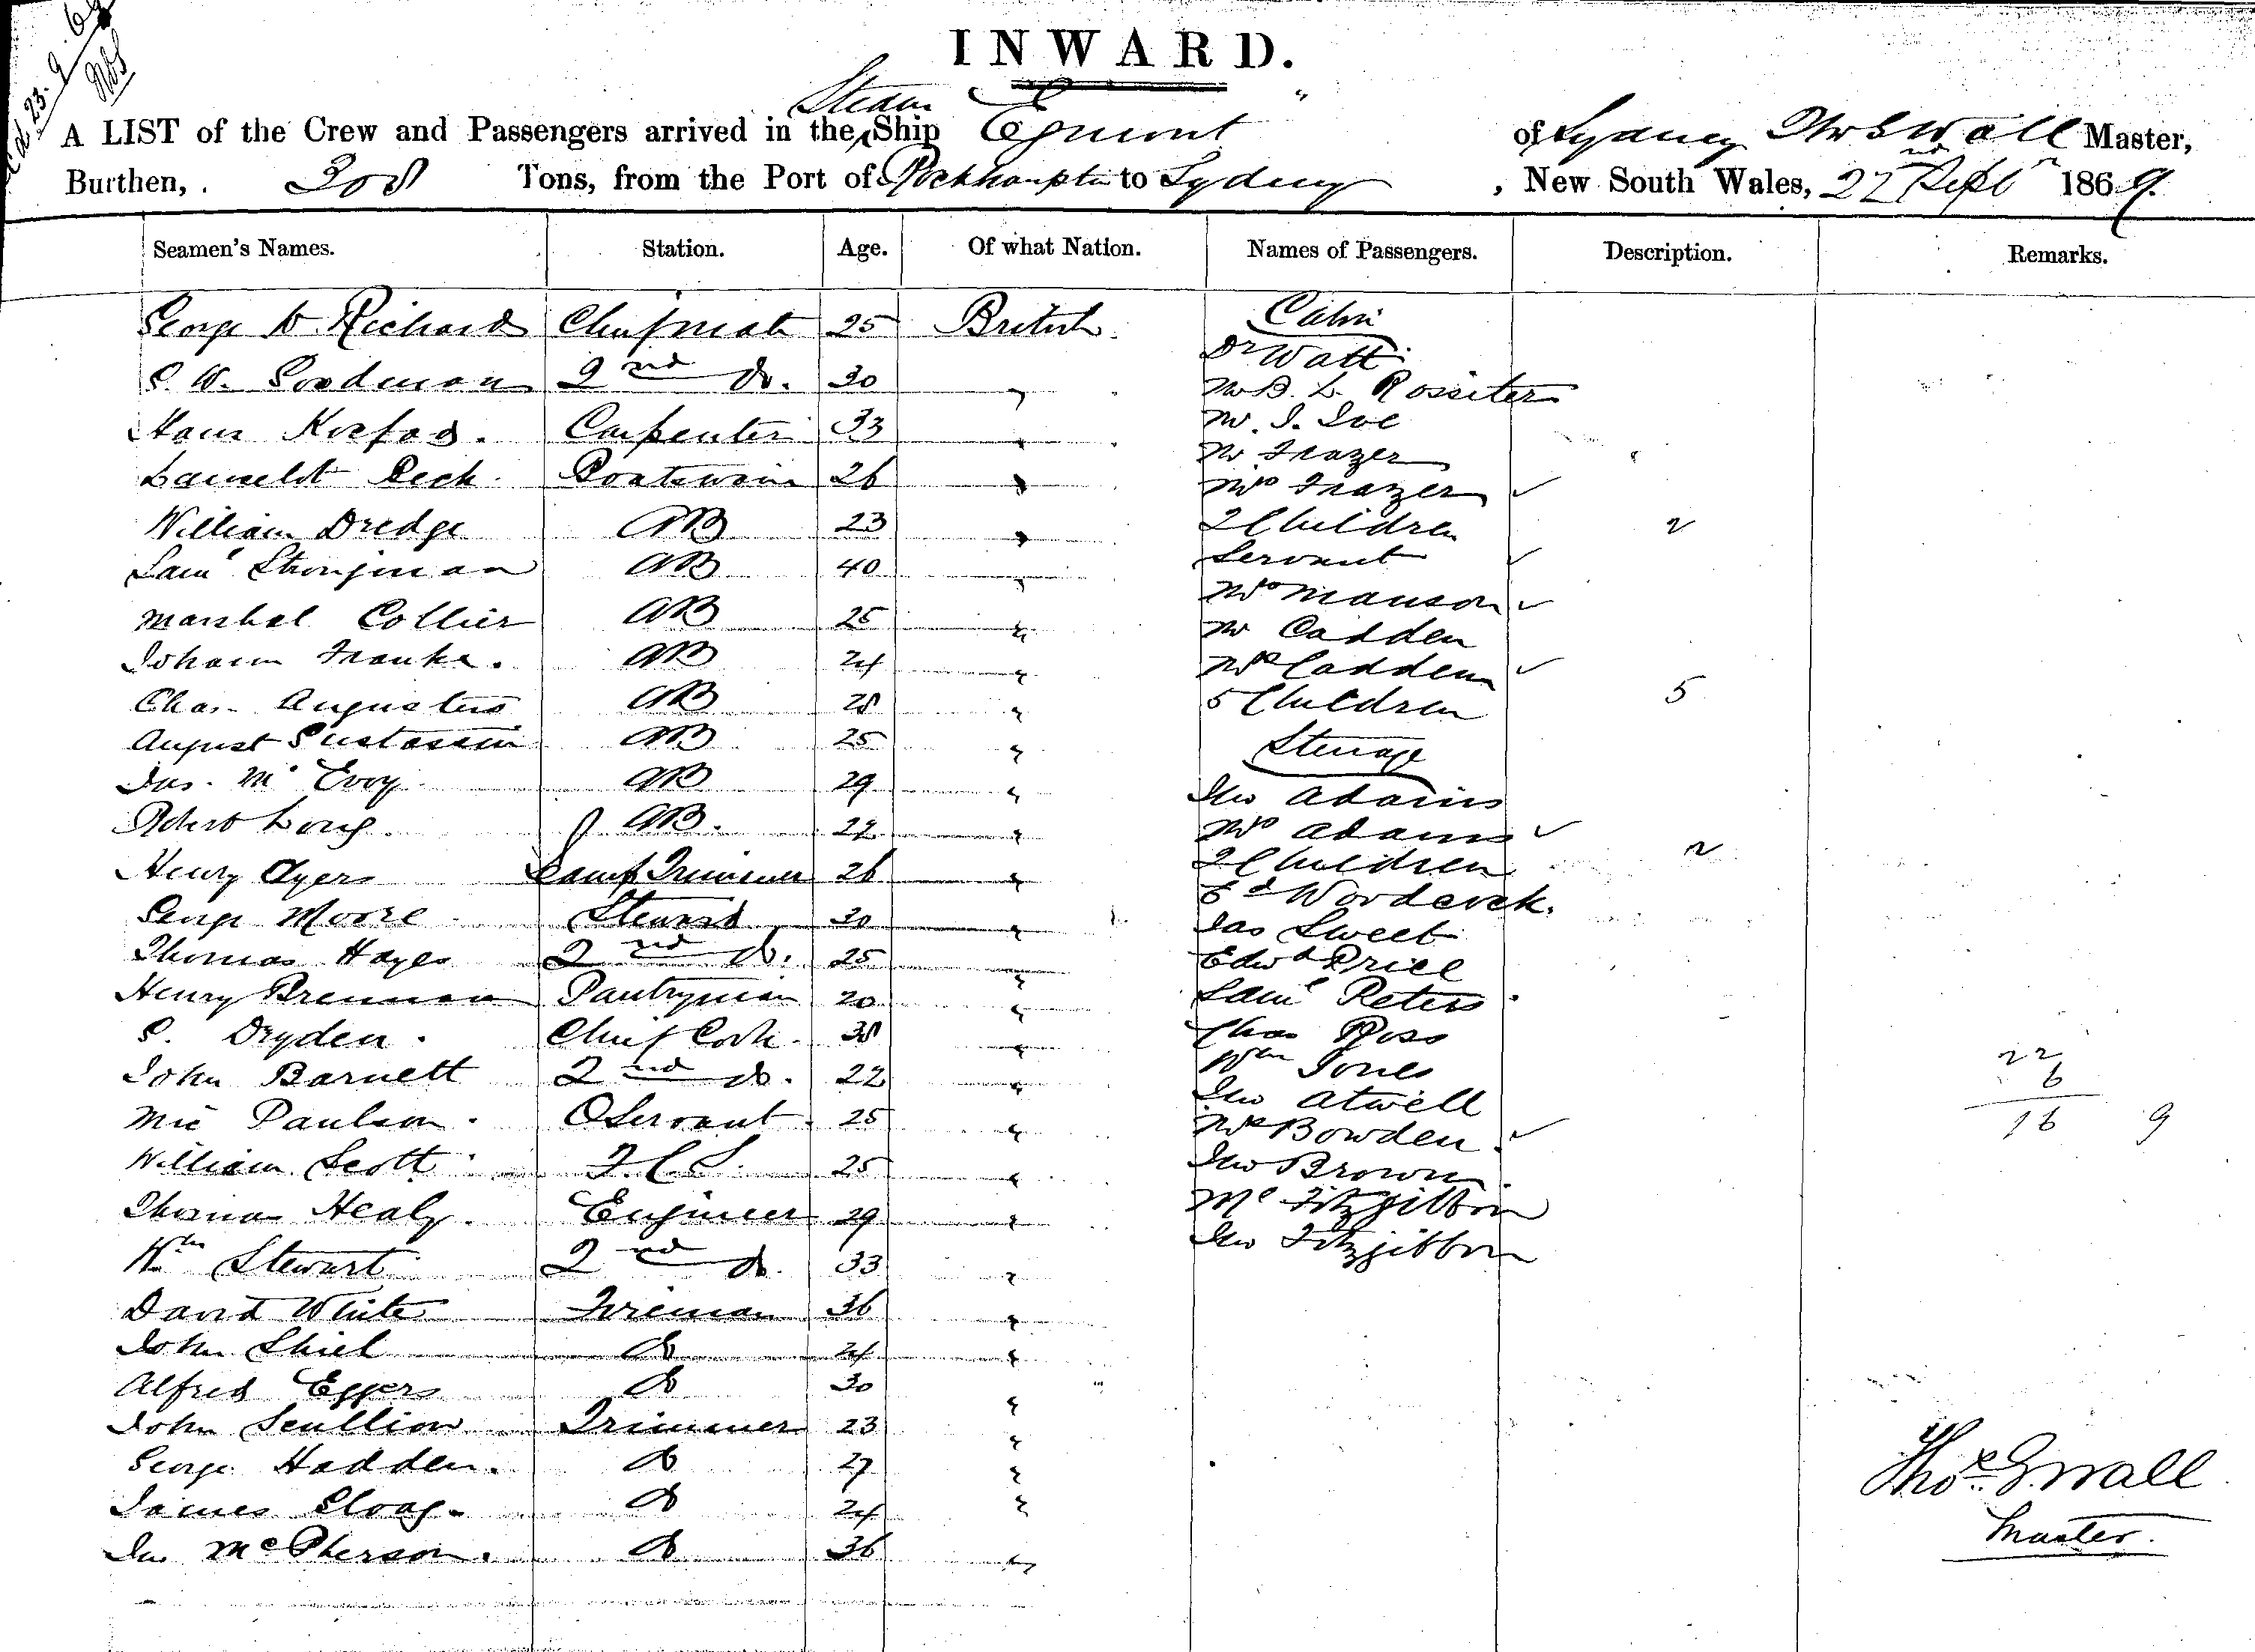 INWARD.
A LIST of the Crew and Passengers arrived in the Steam Ship Egmont of Sydney Thos Wall Master,
Burthen, 308 Tons, from the Port of Rockhampton to Sydney, New South Wales, 22nd Septr 1869.
Seamen's Names. Station. Age. Of what Nation. Names of Passengers. Description. Remarks.
George W. Richard Chief mate 25 British
G. W. Goodman 2nd do. 30 "
Hans 33 Carpenter "
Launcelot Peck Boatswain 26 "
William Dredge AB 23 "
Saml Strongman AB 40 "
Marshal Collier AB 25 "
Johann Franke. AB 24 "
Chas. Augustus AB 28 "
August Gustassin AB 25 "
Jas. Mc Evoy AB 29 "
Robert Long. AB. 22 "
Henry Ayers Lamp Trimmer 26 "
George Moore Steward 30 "
Thomas Hayes 2nd do. 25 "
Henry Brennan Pantryman 20 "
G. Dryden. Chief Cook. 38 "
John Barnett 2nd do. 22 "
Paulson. O Servant. 25 "
William Scott F.C.S. 25 "
Thomas Healy. Engineer 29 "
Wm Stewart 2nd do. 33 "
David White Fireman 36 "
John Shiel do 24 "
Alfred Eggers do 30 "
John Scullion Trimmer 23 "
George Hadden. do 27 "
James Sloag. do 24 "
Jn. McPherson. do 36 "
Cabin
Dr Watt
Mr B. L. Rossiter
Mr. J. Ive
Mr Frazer
Mrs Frazer ✓
2 Children 2
Servant ✓
Mrs Manson ✓
Mr Cadden
Mrs Cadden ✓
5 Children 5
Steerage
Jno Adams
Mrs Adams ✓
2 Children 2
Ed Woodcock.
Jas Sweet
Edwd Price
Saml Peters
Chas Ross
Wm Jones
Jno Atwell
Mrs Bowden ✓
Jno Brown
Ml Fitzgibbon
Jno Fitzgibbon
22
6
16 9
Thos. G. Wall
Master.